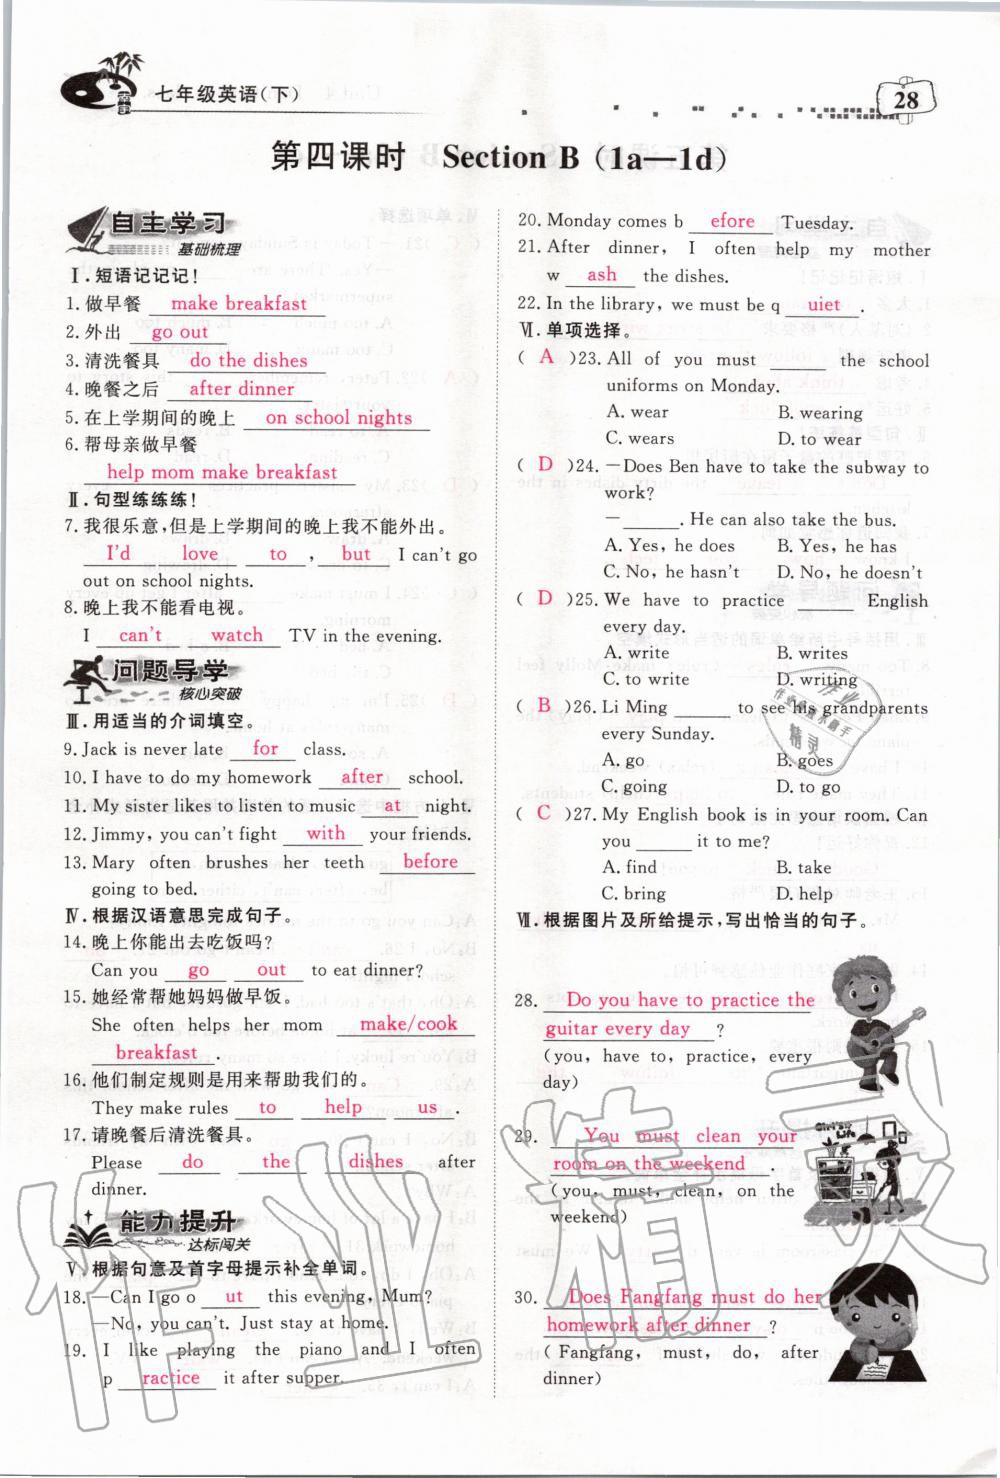 七年级英语(下)
28
第四课时 Section B (1a—1d)
自主学习
基础梳理
Ⅰ.短语记记记!
1.做早餐 make breakfast
2.外出 go out
3.清洗餐具 do the dishes
4.晚餐之后 after dinner
5.在上学期间的晚上 on school nights
6.帮母亲做早餐
help mom make breakfast
Ⅱ.句型练练练!
7.我很乐意,但是上学期间的晚上我不能外出。
I'd love to , but I can't go
out on school nights.
8.晚上我不能看电视。
I can't watch TV in the evening.
问题导学
核心突破
Ⅲ.用适当的介词填空。
9.Jack is never late for class.
10.I have to do my homework after school.
11.My sister likes to listen to music at night.
12.Jimmy, you can't fight with your friends.
13.Mary often brushes her teeth before
going to bed.
Ⅳ.根据汉语意思完成句子。
14.晚上你能出去吃饭吗?
Can you go out to eat dinner?
15.她经常帮她妈妈做早饭。
She often helps her mom make/cook
breakfast .
16.他们制定规则是用来帮助我们的。
They make rules to help us .
17.请晚餐后清洗餐具。
Please do the dishes after
dinner.
能力提升
达标闯关
Ⅴ.根据句意及首字母提示补全单词。
18.—Can I go o ut this evening, Mum?
—No, you can't. Just stay at home.
19. I like playing the piano and I often
p ractice it after supper.
20.Monday comes b efore Tuesday.
21.After dinner, I often help my mother
w ash the dishes.
22.In the library, we must be q uiet .
Ⅵ.单项选择。
( A )23.All of you must ______ the school
uniforms on Monday.
A. wear B. wearing
C. wears D. to wear
( D )24.—Does Ben have to take the subway to
work?
—______. He can also take the bus.
A. Yes, he does B. Yes, he has
C. No, he hasn't D. No, he doesn't
( D )25.We have to practice ______ English
every day.
A. write B. writes
C. to write D. writing
( B )26.Li Ming ______ to see his grandparents
every Sunday.
A. go B. goes
C. going D. to go
( C )27.My English book is in your room. Can
you ______ it to me?
A. find B. take
C. bring D. help
Ⅶ.根据图片及所给提示,写出恰当的句子。
28. Do you have to practice the
guitar every day ?
(you, have to, practice, every
day)
29. You must clean your
room on the weekend .
(you, must, clean, on the
weekend)
30. Does Fangfang must do her
homework after dinner ?
( Fangfang, must, do, after
dinner)
作业精灵